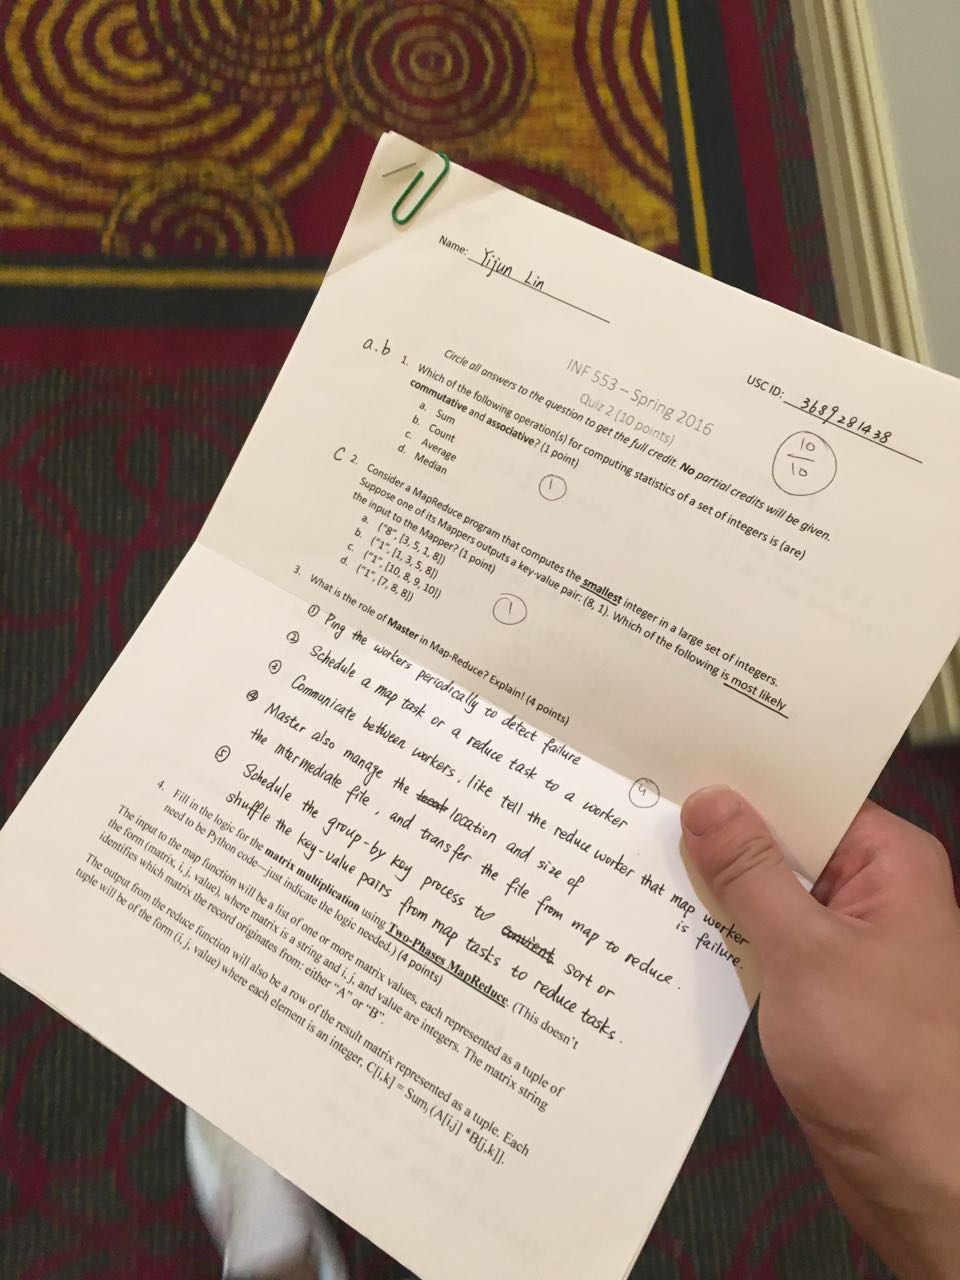 Name: Yijun Lin
USC ID: 3689281438
INF 553 – Spring 2016
Quiz 2 (10 points)
10
10
Circle all answers to the question to get the full credit. No partial credits will be given.
a.b
1. Which of the following operation(s) for computing statistics of a set of integers is (are)
commutative and associative? (1 point)
a. Sum
b. Count
c. Average
d. Median
1
C
2. Consider a MapReduce program that computes the smallest integer in a large set of integers.
Suppose one of its Mappers outputs a key-value pair: (8, 1). Which of the following is most likely
the input to the Mapper? (1 point)
a. ("8", [3, 5, 1, 8])
b. ("1", [1, 3, 5, 8])
c. ("1", [10, 8, 9, 10])
d. ("1", [7, 8, 8])
1
3. What is the role of Master in Map-Reduce? Explain! (4 points)
① Ping the workers periodically to detect failure
② Schedule a map task or a reduce task to a worker
③ Communicate between workers, like tell the reduce worker that map worker
is failure.
④ Master also manage the location and size of
the intermediate file, and transfer the file from map to reduce.
⑤ Schedule the group-by key process to sort or
shuffle the key-value pairs from map tasks to reduce tasks.
4
4. Fill in the logic for the matrix multiplication using Two-Phases MapReduce. (This doesn't
need to be Python code—just indicate the logic needed.) (4 points)
The input to the map function will be a list of one or more matrix values, each represented as a tuple of
the form (matrix, i, j, value), where matrix is a string and i, j, and value are integers. The matrix string
identifies which matrix the record originates from: either "A" or "B".
The output from the reduce function will also be a row of the result matrix represented as a tuple. Each
tuple will be of the form (i, j, value) where each element is an integer, C[i,k] = Sumj (A[i,j] *B[j,k]].